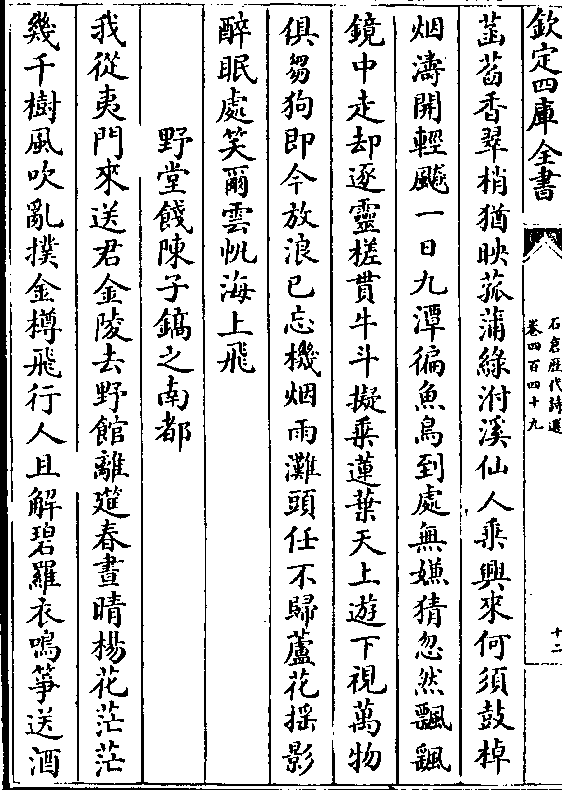 欽定四庫全書
石倉歷代詩選
卷四百四十九
十二
菡萏香翠梢猶映菰蒲綠泭溪仙人乗興來何須鼓棹
烟濤開輕颷一日九潭徧魚鳥到處無嫌猜忽然飄飄
鏡中走却逐靈槎貫牛斗擬乗蓮葉天上遊下視萬物
俱芻狗即今放浪已忘機烟雨灘頭任不歸蘆花揺影
醉眠處笑爾雲帆海上飛
野堂餞陳子鎬之南都
我從夷門來送君金陵去野館離筵春晝晴楊花茫茫
幾千樹風吹亂撲金樽飛行人且解碧羅衣鳴箏送酒